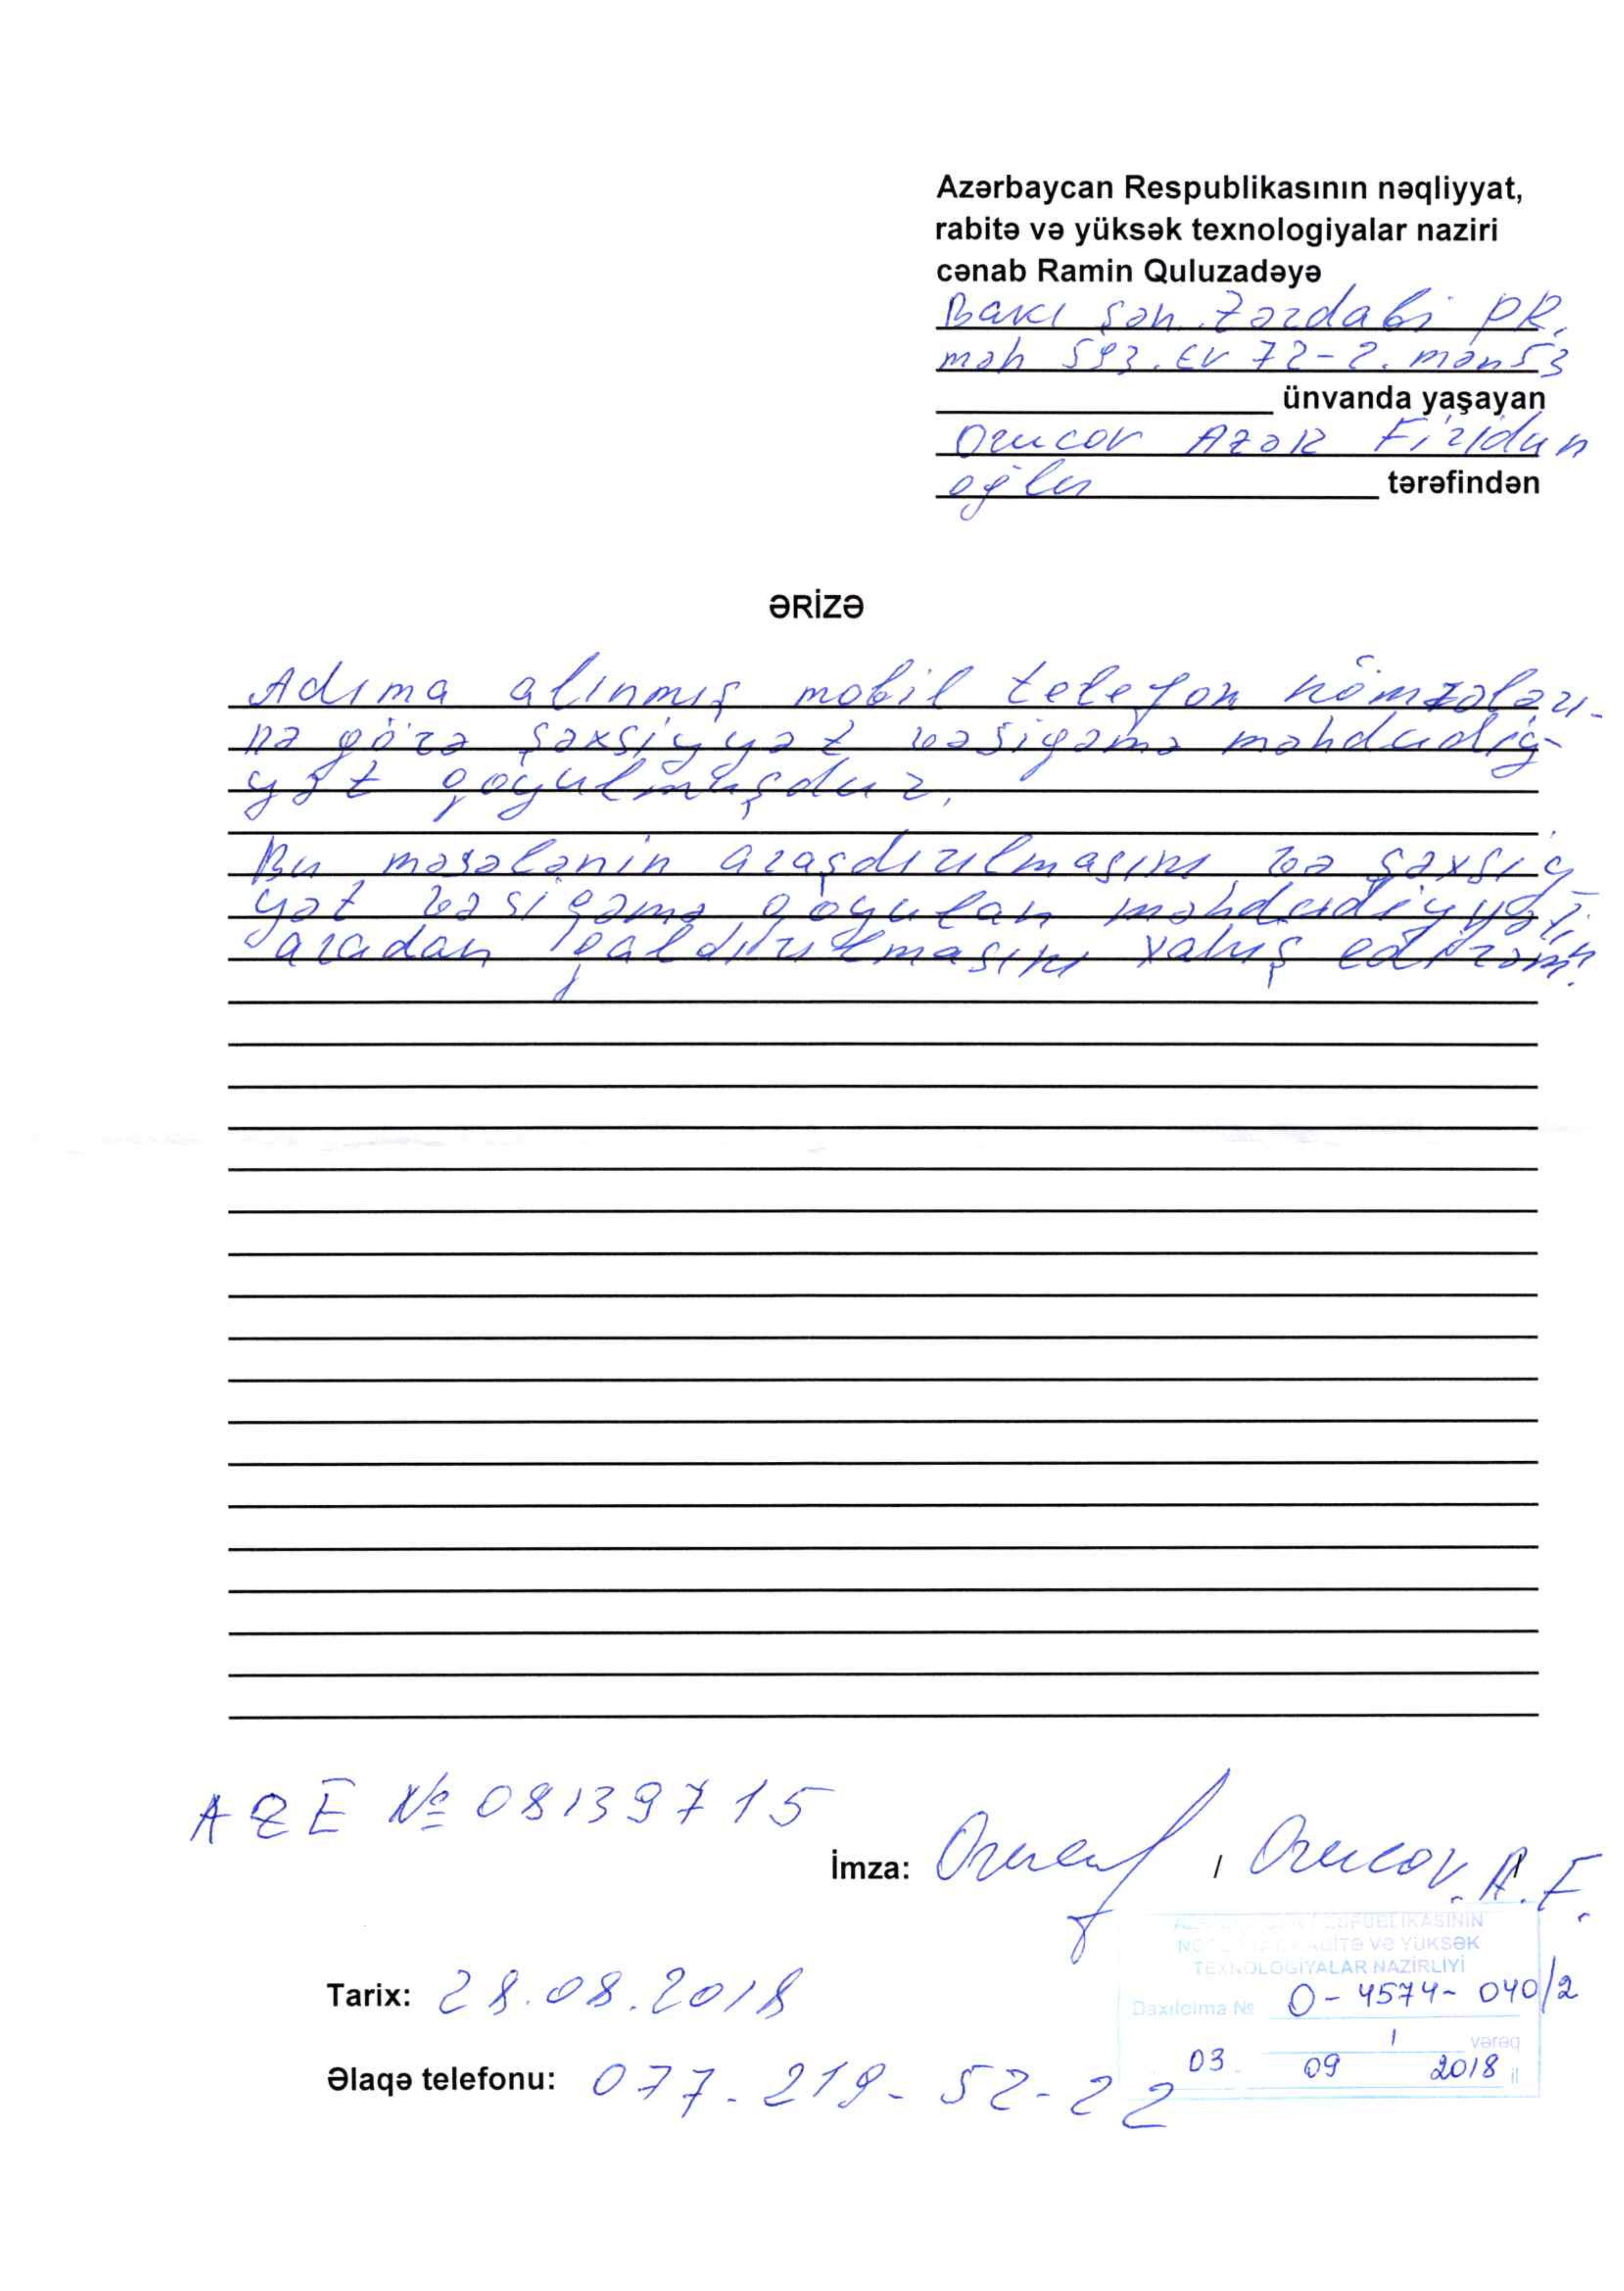 Azərbaycan Respublikasının nəqliyyat,
rabitə və yüksək texnologiyalar naziri
cənab Ramin Quluzadəyə
Bakı şəh. Zərdabi PR.
məh 593. EV 72-2. mən 53
ünvanda yaşayan
Orucov Azər Firidun
oğlu tərəfindən
ƏRİZƏ
Adıma alınmış mobil telefon nömrələri-
nə görə şəxsiyyət vəsiqəmə məhdudiy-
yət qoyulmuşdur.
Bu məsələnin araşdırılmasını və şəxsiy
yət vəsiqəmə qoyulan məhdudiyyətin
aradan qaldırılmasını xahiş edirəm.
AZE № 08139715
İmza: / Orucov. A. F.
Tarix: 28.08.2018
Əlaqə telefonu: 077-219-52-22
RESPUBLİKASININ
RABİTƏ VƏ YÜKSƏK
TEXNOLOGİYALAR NAZİRLİYİ
Daxilolma № O-4574-040/2
1 vərəq
03 09 2018 il